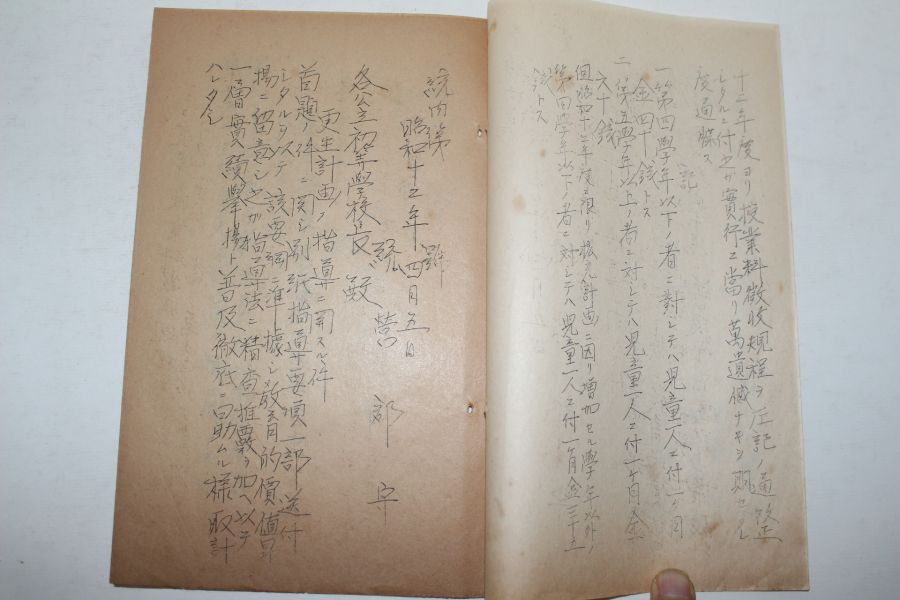 十二年度ヨリ授業料徴收規程ヲ左記ノ通
レタルニ付之ガ實行ニ當リ萬遺憾ナキヲ期セラレ
度通牒ス
記
一 第四學年以下ノ者ニ對シテハ兒童一人ニ付一ヶ月
金四十錢トス
二 第五學年以上ノ者ニ対シテハ児童一人ニ付一ヶ月金
六十錢
但昭和十二年度ニ限リ拡充計画ニ因リ増加セル學年以外ノ
第四學年以下ノ者ニ対シテハ児童一人ニ付一ヶ月金三十五
錢トス
統内第 號
昭和十二年四月五日
統營郡守
各公立初等學校長殿
更生計画ノ指導ニ関スル件
首題ノ件ニ関シ別紙指導要項一部送付
シタルニ 該要綱ニ準據シ 教育的價值昻
揚ニ留意シ之ガ指導法ニ精査推覈ヲ加ヘ以テ
一層實績擧揚ト普及徹底ニ助ムル様取計
ハレタシ